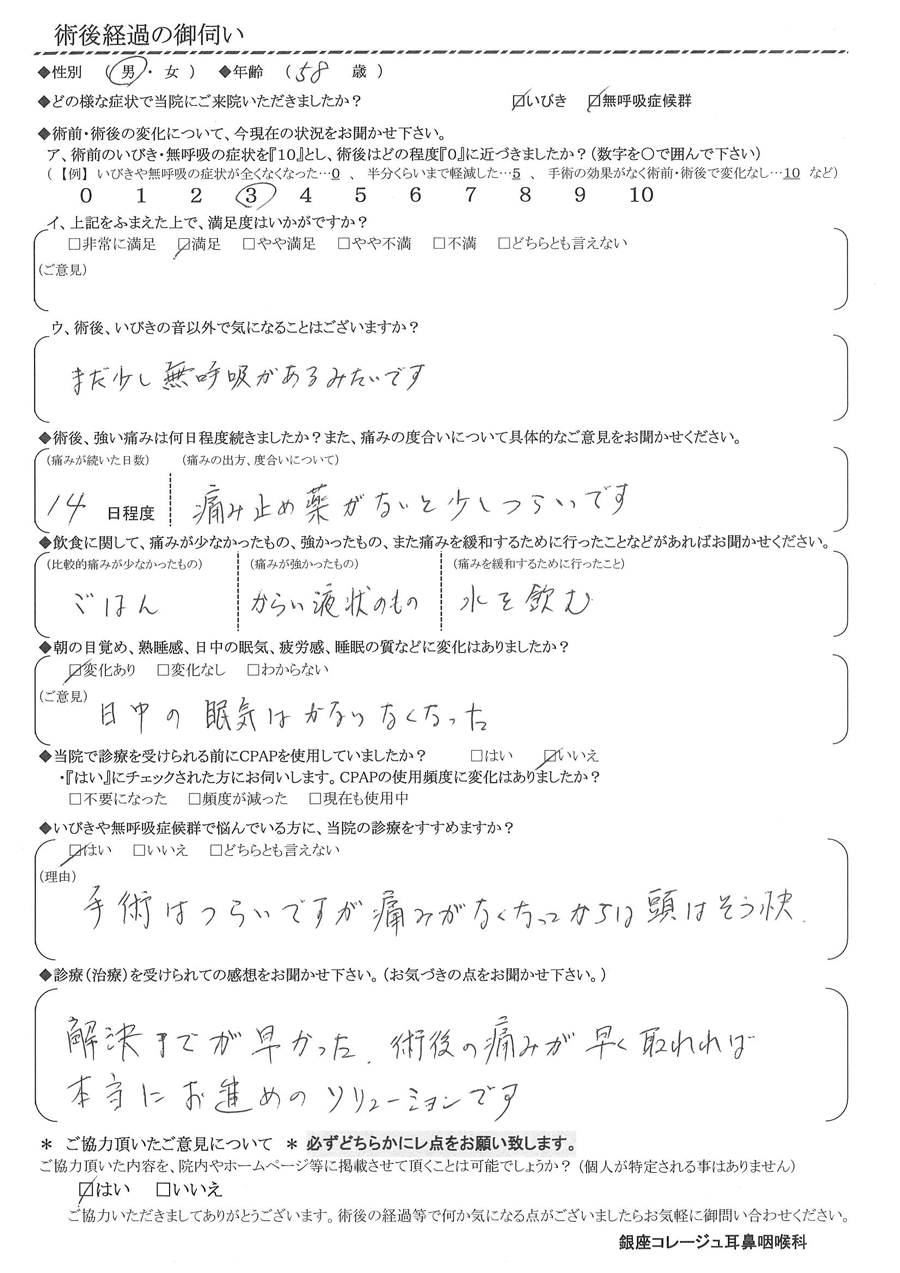 術後経過の御伺い
◆性別 （ 男 ・ 女 ） ◆年齢 （ 58 歳 ）
◆どの様な症状で当院にご来院いただきましたか？ ☑いびき ☑無呼吸症候群
◆術前・術後の変化について、今現在の状況をお聞かせ下さい。
ア、術前のいびき・無呼吸の症状を『10』とし、術後はどの程度『0』に近づきましたか？（数字を〇で囲んで下さい）
（ 【例】 いびきや無呼吸の症状が全くなくなった…0 、 半分くらいまで軽減した…5 、 手術の効果がなく術前・術後で変化なし…10 など）
0 1 2 3 4 5 6 7 8 9 10
イ、上記をふまえた上で、満足度はいかがですか？
□非常に満足 ☑満足 □やや満足 □やや不満 □不満 □どちらとも言えない
（ご意見）
ウ、術後、いびきの音以外で気になることはございますか？
まだ少し無呼吸があるみたいです
◆術後、強い痛みは何日程度続きましたか？また、痛みの度合いについて具体的なご意見をお聞かせください。
（痛みが続いた日数） （痛みの出方、度合いについて）
14 日程度 痛み止め薬がないと少しつらいです
◆飲食に関して、痛みが少なかったもの、強かったもの、また痛みを緩和するために行ったことなどがあればお聞かせください。
（比較的痛みが少なかったもの） （痛みが強かったもの） （痛みを緩和するために行ったこと）
ごはん からい液状のもの 水を飲む
◆朝の目覚め、熟睡感、日中の眠気、疲労感、睡眠の質などに変化はありましたか？
☑変化あり □変化なし □わからない
（ご意見）
日中の眠気はかないなくなった
◆当院で診療を受けられる前にCPAPを使用していましたか？ □はい ☑いいえ
・『はい』にチェックされた方にお伺いします。CPAPの使用頻度に変化はありましたか？
□不要になった □頻度が減った □現在も使用中
◆いびきや無呼吸症候群で悩んでいる方に、当院の診療をすすめますか？
☑はい □いいえ □どちらとも言えない
（理由）
手術はつらいですが痛みがなくなってからは頭はそう快.
◆診療（治療）を受けられての感想をお聞かせ下さい。（お気づきの点をお聞かせ下さい。）
解決までが早かった. 術後の痛みが早く取れれば
本当にお進めのソリューションです
＊ ご協力頂いたご意見について ＊ 必ずどちらかにレ点をお願い致します。
ご協力頂いた内容を、院内やホームページ等に掲載させて頂くことは可能でしょうか？（個人が特定される事はありません）
☑はい □いいえ
ご協力いただきましてありがとうございます。術後の経過等で何か気になる点がございましたらお気軽に御問い合わせください。
銀座コレージュ耳鼻咽喉科